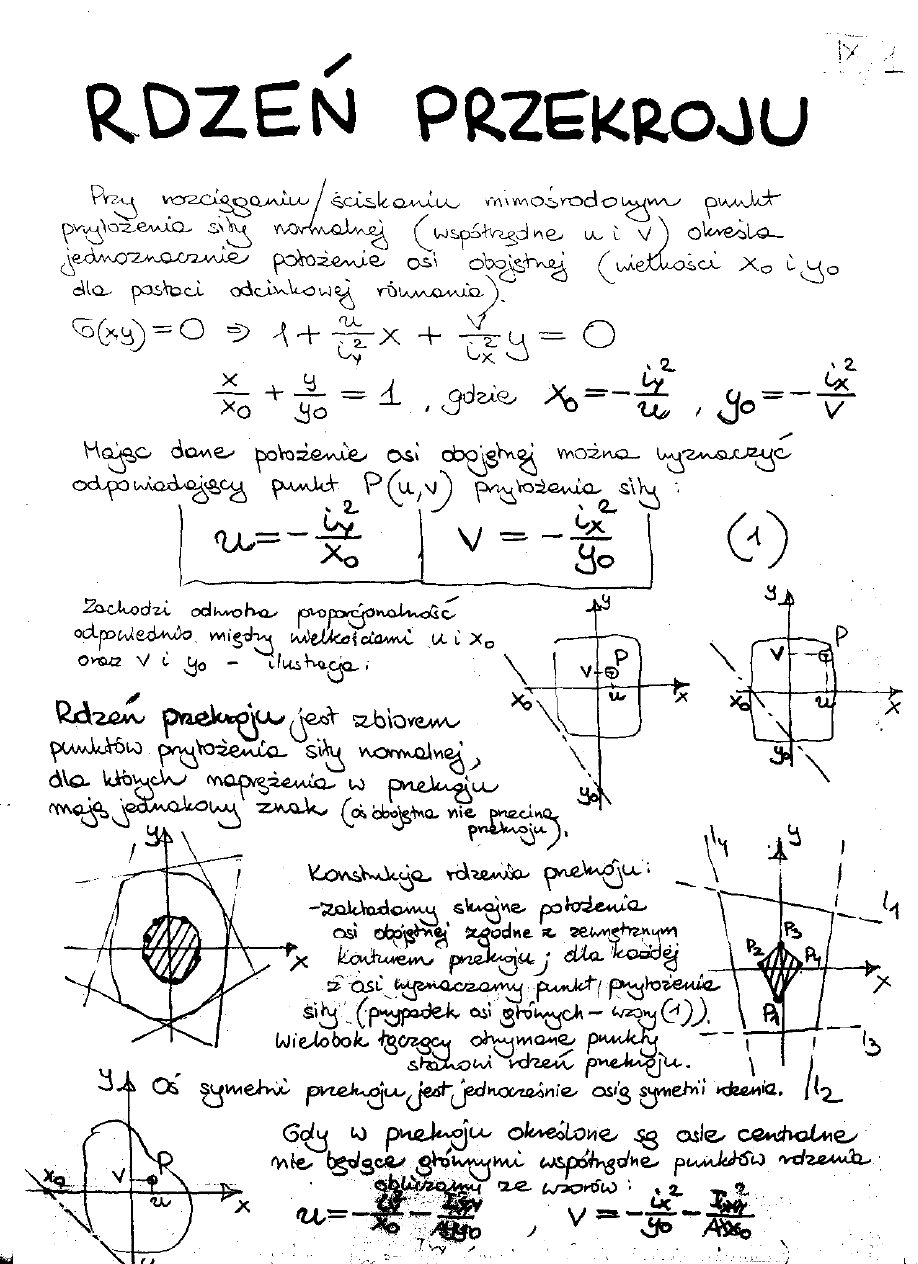 IX, 1
RDZEŃ PRZEKROJU
Przy rozciąganiu/ściskaniu mimośrodowym punkt
przyłożenia siły normalnej (współrzędne u i v) określa
jednoznacznie położenie osi obojętnej (wielkości x₀ i y₀
dla postaci odcinkowej równania).
σ(xy) = 0 ⇒ 1 + u/i_y² x + v/i_x² y = 0
x/x₀ + y/y₀ = 1 , gdzie x₀ = - i_y²/u , y₀ = - i_x²/v
Mając dane położenie osi obojętnej można wyznaczyć
odpowiadający punkt P(u,v) przyłożenia siły :
u = - i_y²/x₀ v = - i_x²/y₀ (1)
Zachodzi odwrotna proporcjonalność
odpowiednio między wielkościami u i x₀
oraz v i y₀ - ilustracja:
y
P
v
u
x₀
x
y₀
y
P
v
x₀
u
x
y₀
Rdzeń przekroju jest zbiorem
punktów przyłożenia siły normalnej,
dla których naprężenia w przekroju
mają jednakowy znak (oś obojętna nie przecina
przekroju).
y
x
Konstrukcja rdzenia przekroju:
-zakładamy skrajne położenia
osi obojętnej zgodne z zewnętrznym
konturem przekroju; dla każdej
z osi wyznaczamy punkt przyłożenia
siły (przypadek osi głównych - wzory (1)).
Wielobok łączący otrzymane punkty
stanowi rdzeń przekroju.
l₄
y
l₁
P₃
P₂
P₄
x
P₁
l₃
l₂
Oś symetrii przekroju jest jednocześnie osią symetrii rdzenia.
y
P
v
x₀
u
x
Gdy w przekroju określone są osie centralne
nie będące głównymi współrzędne punktów rdzenia
obliczamy ze wzorów:
u = - i_y²/x₀ - , v = - i_x²/y₀ -